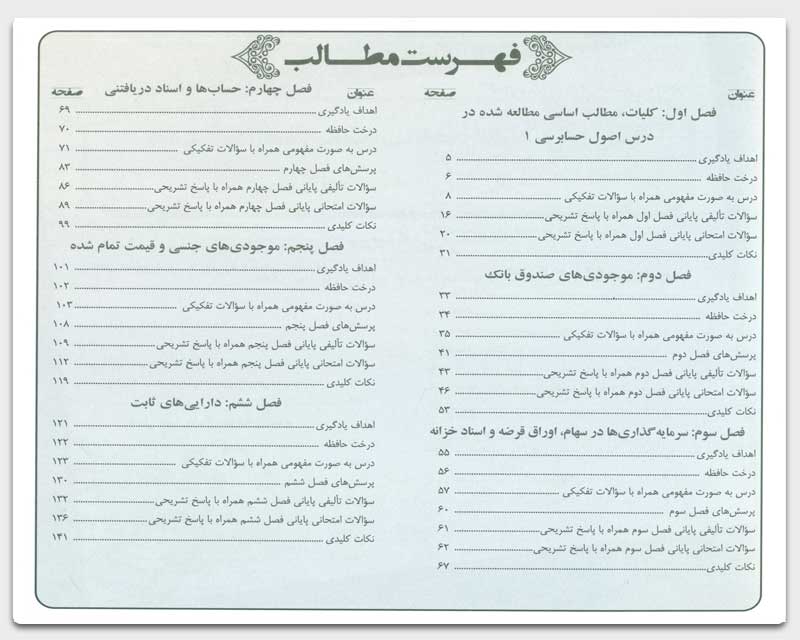 فهرست مطالب
عنوان صفحه
فصل اول: کلیات، مطالب اساسی مطالعه شده در
درس اصول حسابرسی ۱
اهداف یادگیری ۵
درخت حافظه ۶
درس به صورت مفهومی همراه با سؤالات تفکیکی ۸
سؤالات تألیفی پایانی فصل اول همراه با پاسخ تشریحی ۱۶
سؤالات امتحانی پایانی فصل اول همراه با پاسخ تشریحی ۲۰
نکات کلیدی ۳۱
فصل دوم: موجودی‌های صندوق بانک
اهداف یادگیری ۳۳
درخت حافظه ۳۴
درس به صورت مفهومی همراه با سؤالات تفکیکی ۳۵
پرسش‌های فصل دوم ۴۱
سؤالات تألیفی پایانی فصل دوم همراه با پاسخ تشریحی ۴۳
سؤالات امتحانی پایانی فصل دوم همراه با پاسخ تشریحی ۴۶
نکات کلیدی ۵۳
فصل سوم: سرمایه‌گذاری‌ها در سهام، اوراق قرضه و اسناد خزانه
اهداف یادگیری ۵۵
درخت حافظه ۵۶
درس به صورت مفهومی همراه با سؤالات تفکیکی ۵۷
پرسش‌های فصل سوم ۶۰
سؤالات تألیفی پایانی فصل سوم همراه با پاسخ تشریحی ۶۱
سؤالات امتحانی پایانی فصل سوم همراه با پاسخ تشریحی ۶۲
نکات کلیدی ۶۷
عنوان صفحه
فصل چهارم: حساب‌ها و اسناد دریافتنی
اهداف یادگیری ۶۹
درخت حافظه ۷۰
درس به صورت مفهومی همراه با سؤالات تفکیکی ۷۱
پرسش‌های فصل چهارم ۸۳
سؤالات تألیفی پایانی فصل چهارم همراه با پاسخ تشریحی ۸۶
سؤالات امتحانی پایانی فصل چهارم همراه با پاسخ تشریحی ۸۹
نکات کلیدی ۹۹
فصل پنجم: موجودی‌های جنسی و قیمت تمام شده
اهداف یادگیری ۱۰۱
درخت حافظه ۱۰۲
درس به صورت مفهومی همراه با سؤالات تفکیکی ۱۰۳
پرسش‌های فصل پنجم ۱۰۸
سؤالات تألیفی پایانی فصل پنجم همراه با پاسخ تشریحی ۱۰۹
سؤالات امتحانی پایانی فصل پنجم همراه با پاسخ تشریحی ۱۱۲
نکات کلیدی ۱۱۹
فصل ششم: دارایی‌های ثابت
اهداف یادگیری ۱۲۱
درخت حافظه ۱۲۲
درس به صورت مفهومی همراه با سؤالات تفکیکی ۱۲۳
پرسش‌های فصل ششم ۱۳۰
سؤالات تألیفی پایانی فصل ششم همراه با پاسخ تشریحی ۱۳۲
سؤالات امتحانی پایانی فصل ششم همراه با پاسخ تشریحی ۱۳۶
نکات کلیدی ۱۴۱